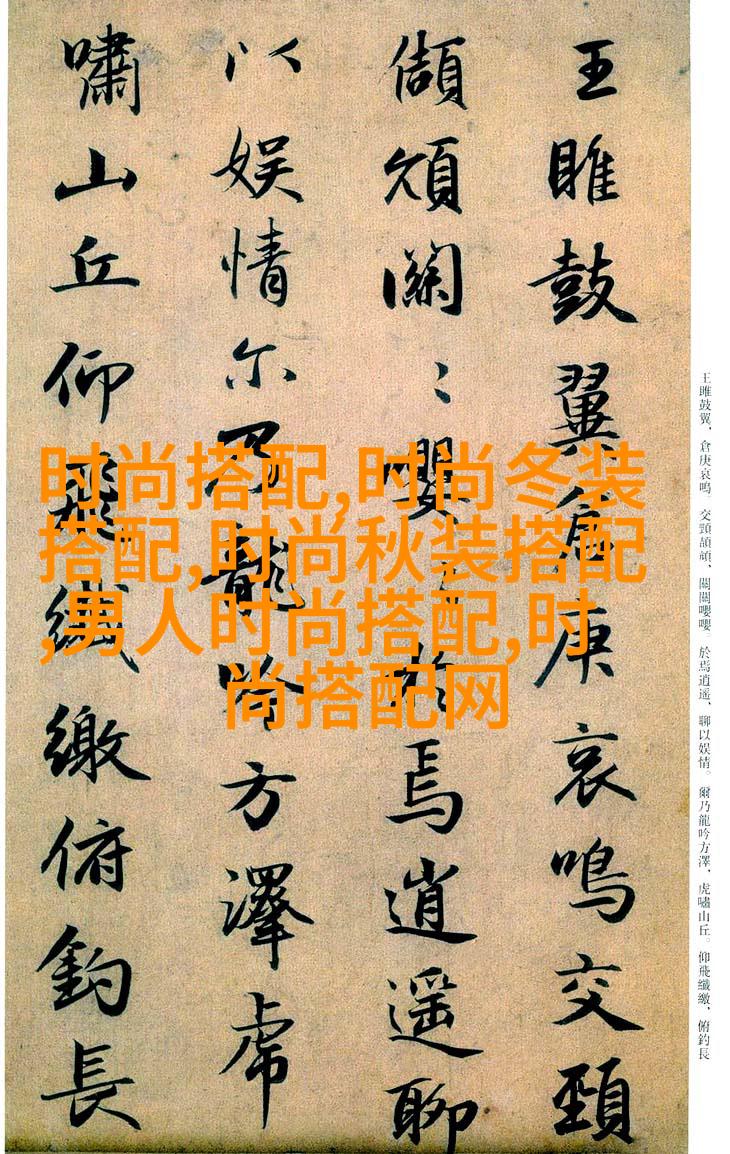 王雎鼓翼倉庚哀鳴交頸
頡頏關〻嚶〻於焉逍遥聊
以娱情尔乃龍吟方澤虎
嘯山丘仰飛纖繳俯釣長
王雎鼓翼，倉庚哀鳴。交頸頡頏，關關嚶嚶。於焉逍遥，聊以娱情。爾乃龍吟方澤，虎嘯山丘。仰飛纖繳，俯釣長
时尚搭配,时尚冬装
搭配,时尚秋装搭配
,男人时尚搭配,时
尚搭配网